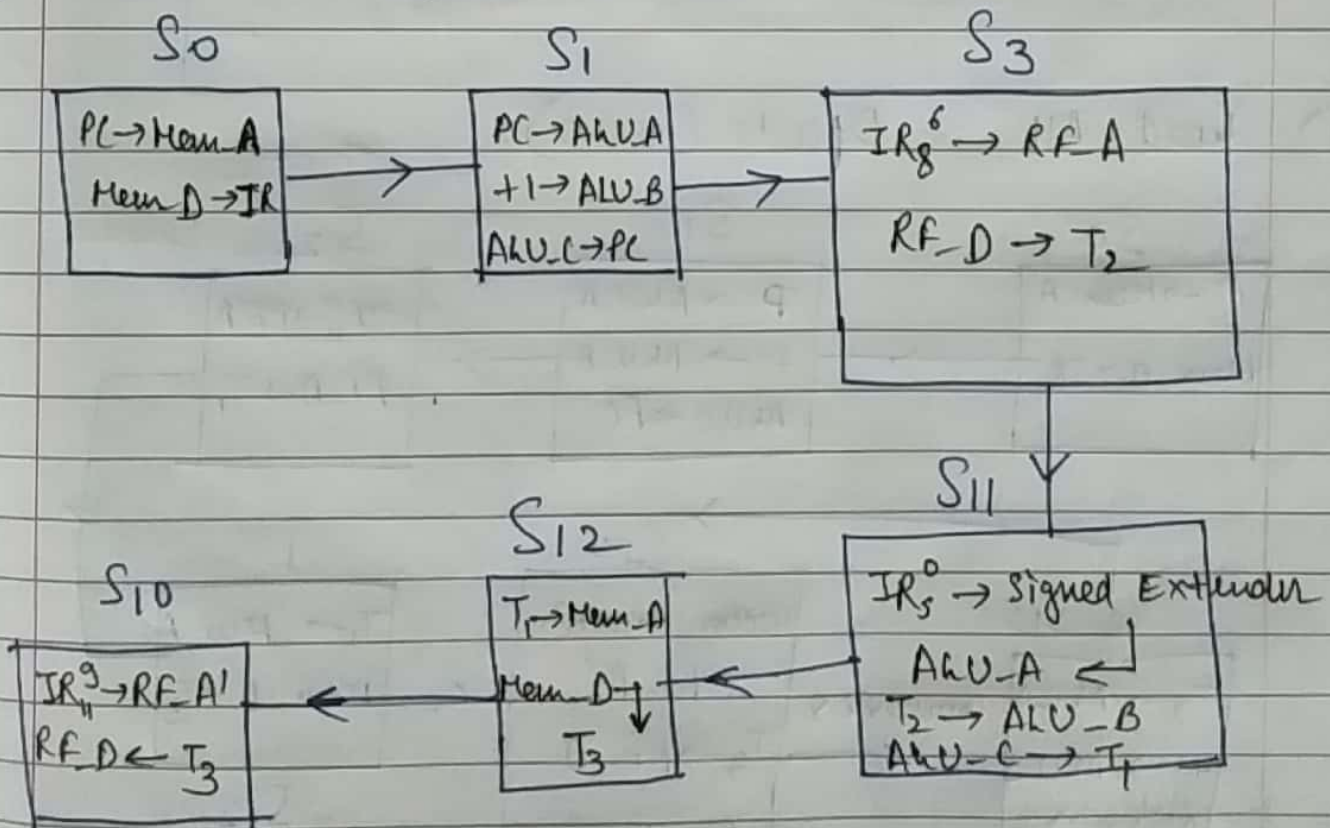 S0
PC→Mem_A
Mem_D→IR
S1
PC→ALU_A
+1→ALU_B
ALU_C→PC
S3
IR⁶₈ → RF_A
RF_D → T₂
S11
IR⁰₅ → Signed Extender
ALU_A ↵
T₂ → ALU_B
ALU_C → T₁
S12
T₁→Mem_A
Mem_D↴
T₃
S10
IR⁹₁₁→RF_A'
RF_D ← T₃